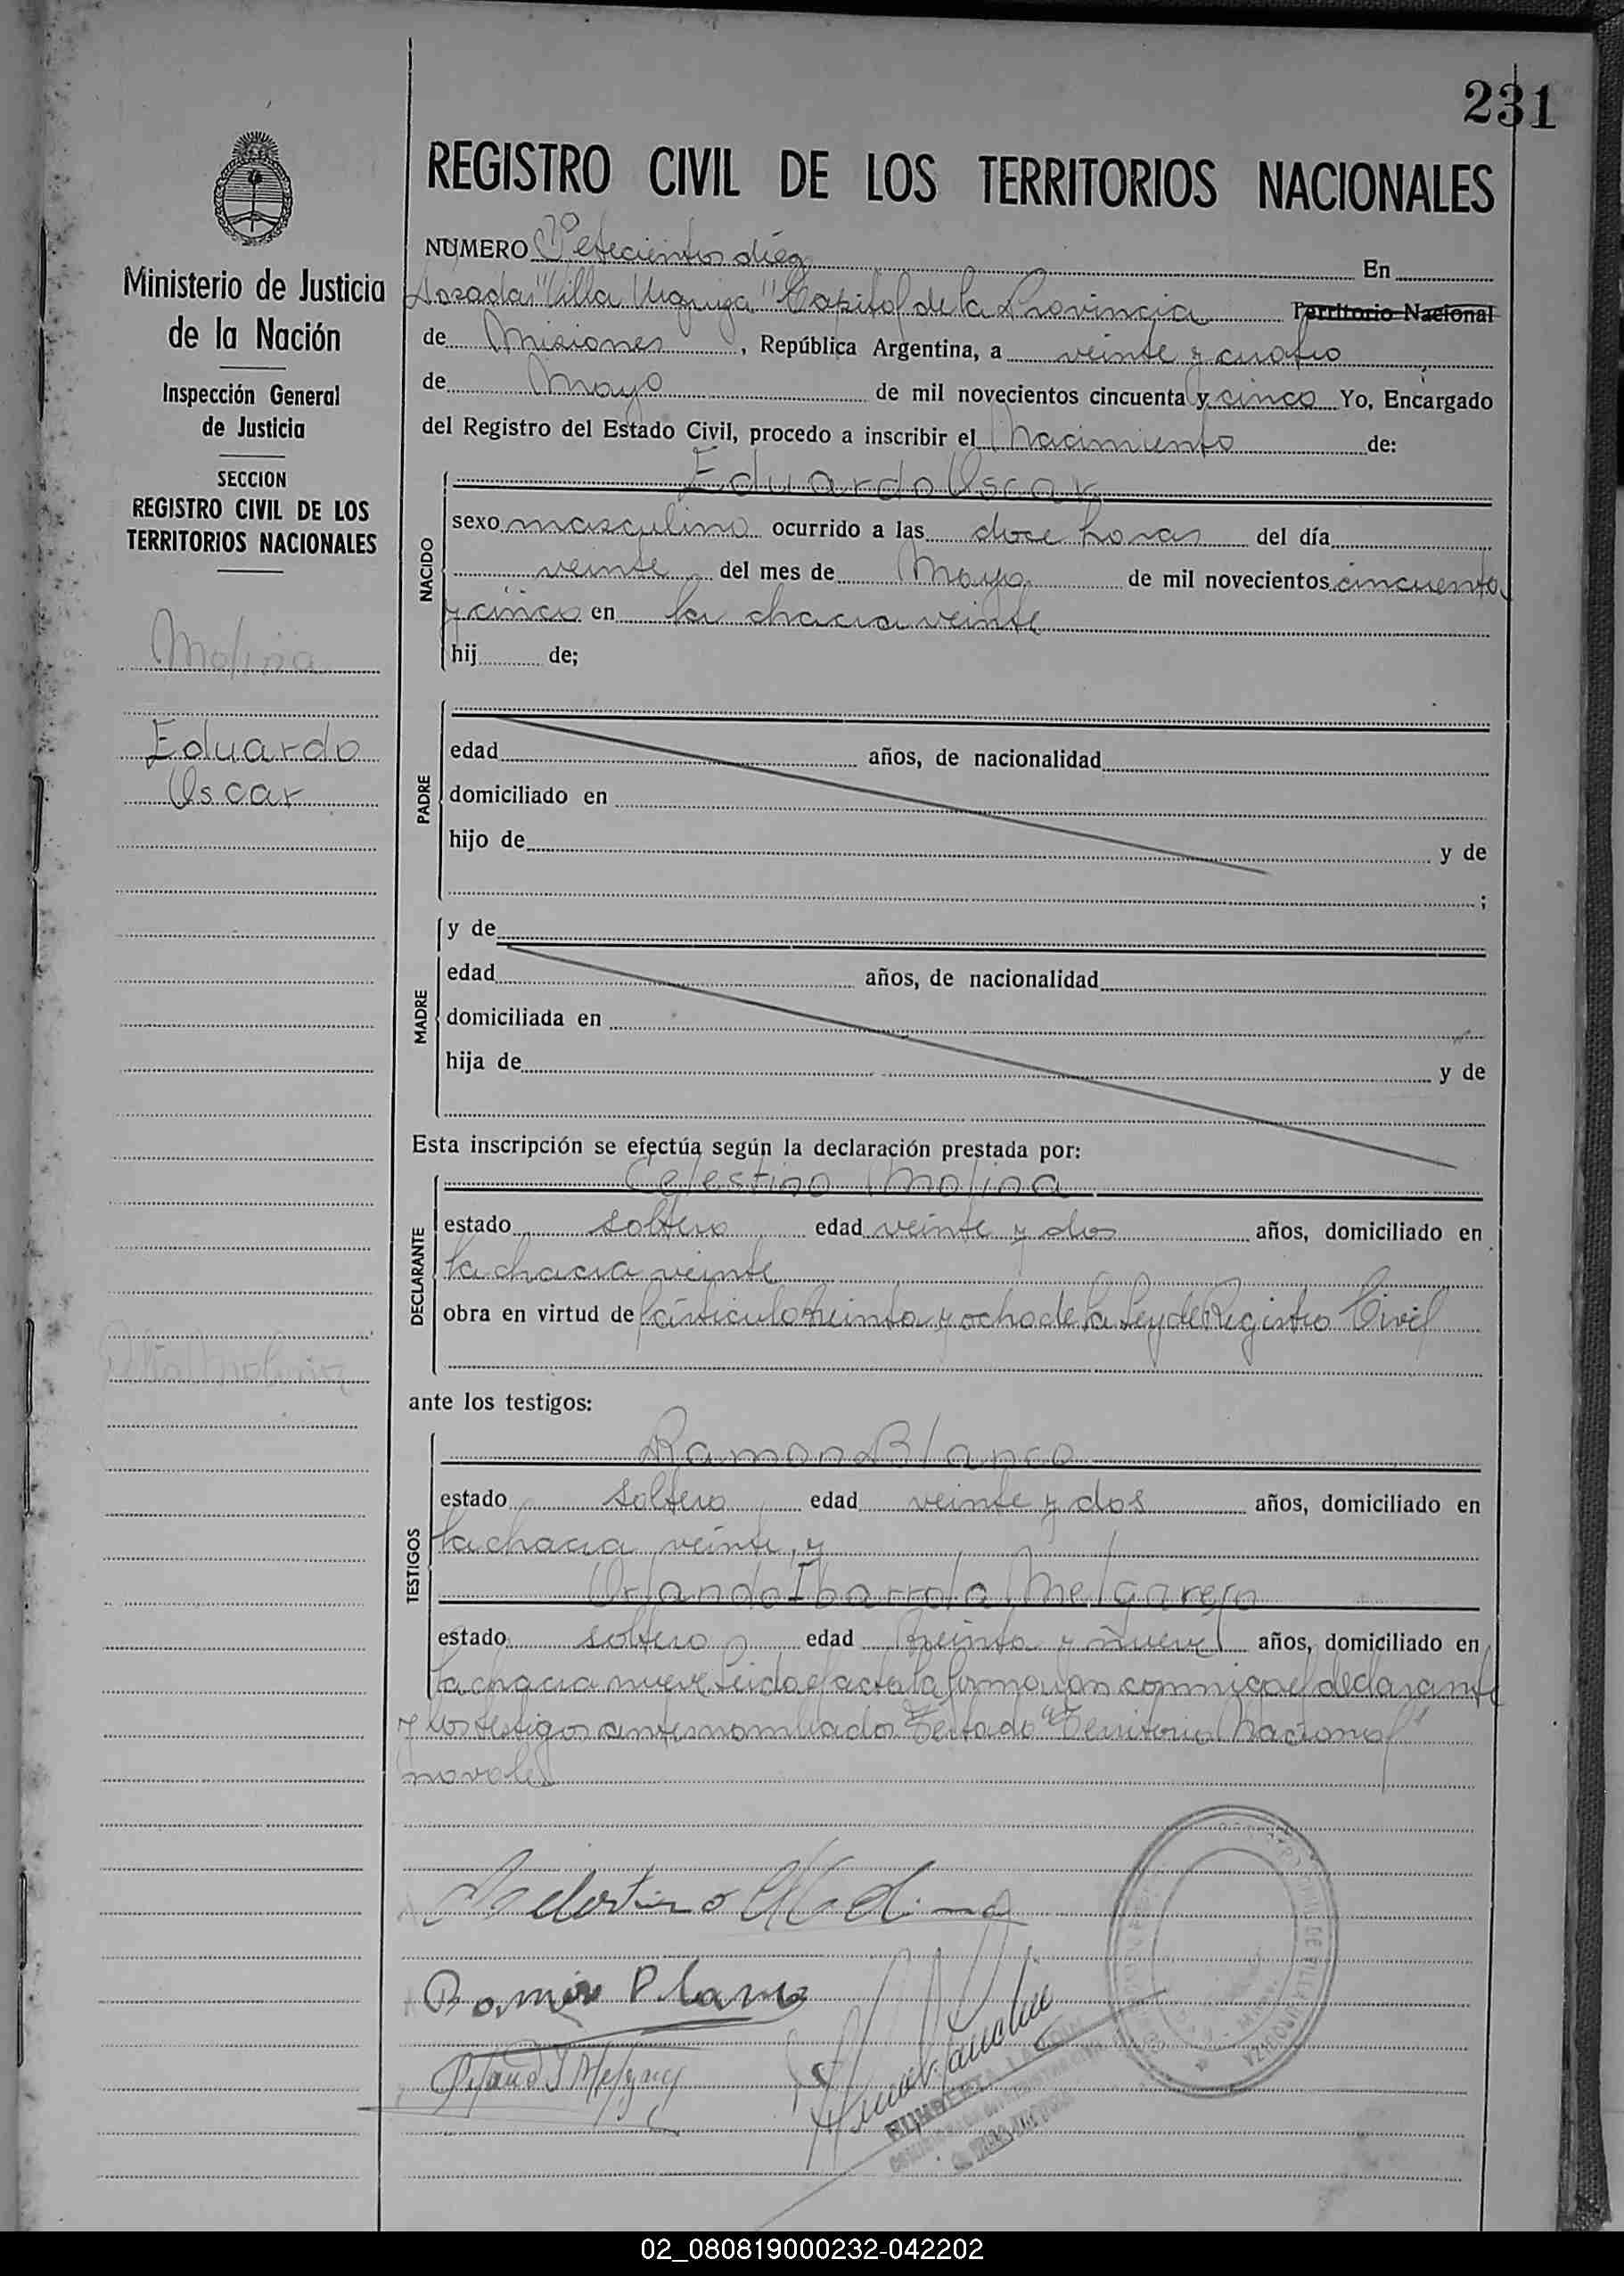 231
REGISTRO CIVIL DE LOS TERRITORIOS NACIONALES
Ministerio de Justicia
de la Nación
Inspección General
de Justicia
SECCION
REGISTRO CIVIL DE LOS
TERRITORIOS NACIONALES
Molina
Eduardo
Oscar
NUMERO Setecientos diez En
Posadas "Villa Urquiza" Capital de la Provincia Territorio Nacional
de Misiones, República Argentina, a veinte y cuatro
de Mayo de mil novecientos cincuenta y cinco Yo, Encargado
del Registro del Estado Civil, procedo a inscribir el Nacimiento de:
NACIDO
Eduardo Oscar
sexo masculino ocurrido a las doce horas del día
veinte del mes de Mayo de mil novecientos cincuenta
y cinco en la chacra veinte
hij de;
PADRE
edad años, de nacionalidad
domiciliado en
hijo de y de
;
MADRE
y de
edad años, de nacionalidad
domiciliada en
hija de y de
Esta inscripción se efectúa según la declaración prestada por:
DECLARANTE
Celestino Molina
estado soltero edad veinte y dos años, domiciliado en
la chacra veinte
obra en virtud de l'artículo treinta y ocho de la Ley de Registro Civil
ante los testigos:
TESTIGOS
Ramon Blanco
estado soltero edad veinte y dos años, domiciliado en
la chacra veinte, y
Orlando Ibarrola Melgarejo
estado soltero edad treinta y nueve años, domiciliado en
la chacra nueve Leida el acta la firmaron conmigo el declarante
y los testigos antes nombrados Testado "Territorio Nacional"
no vale
Celestino Molina
Ramon Blanco
02_080819000232-042202